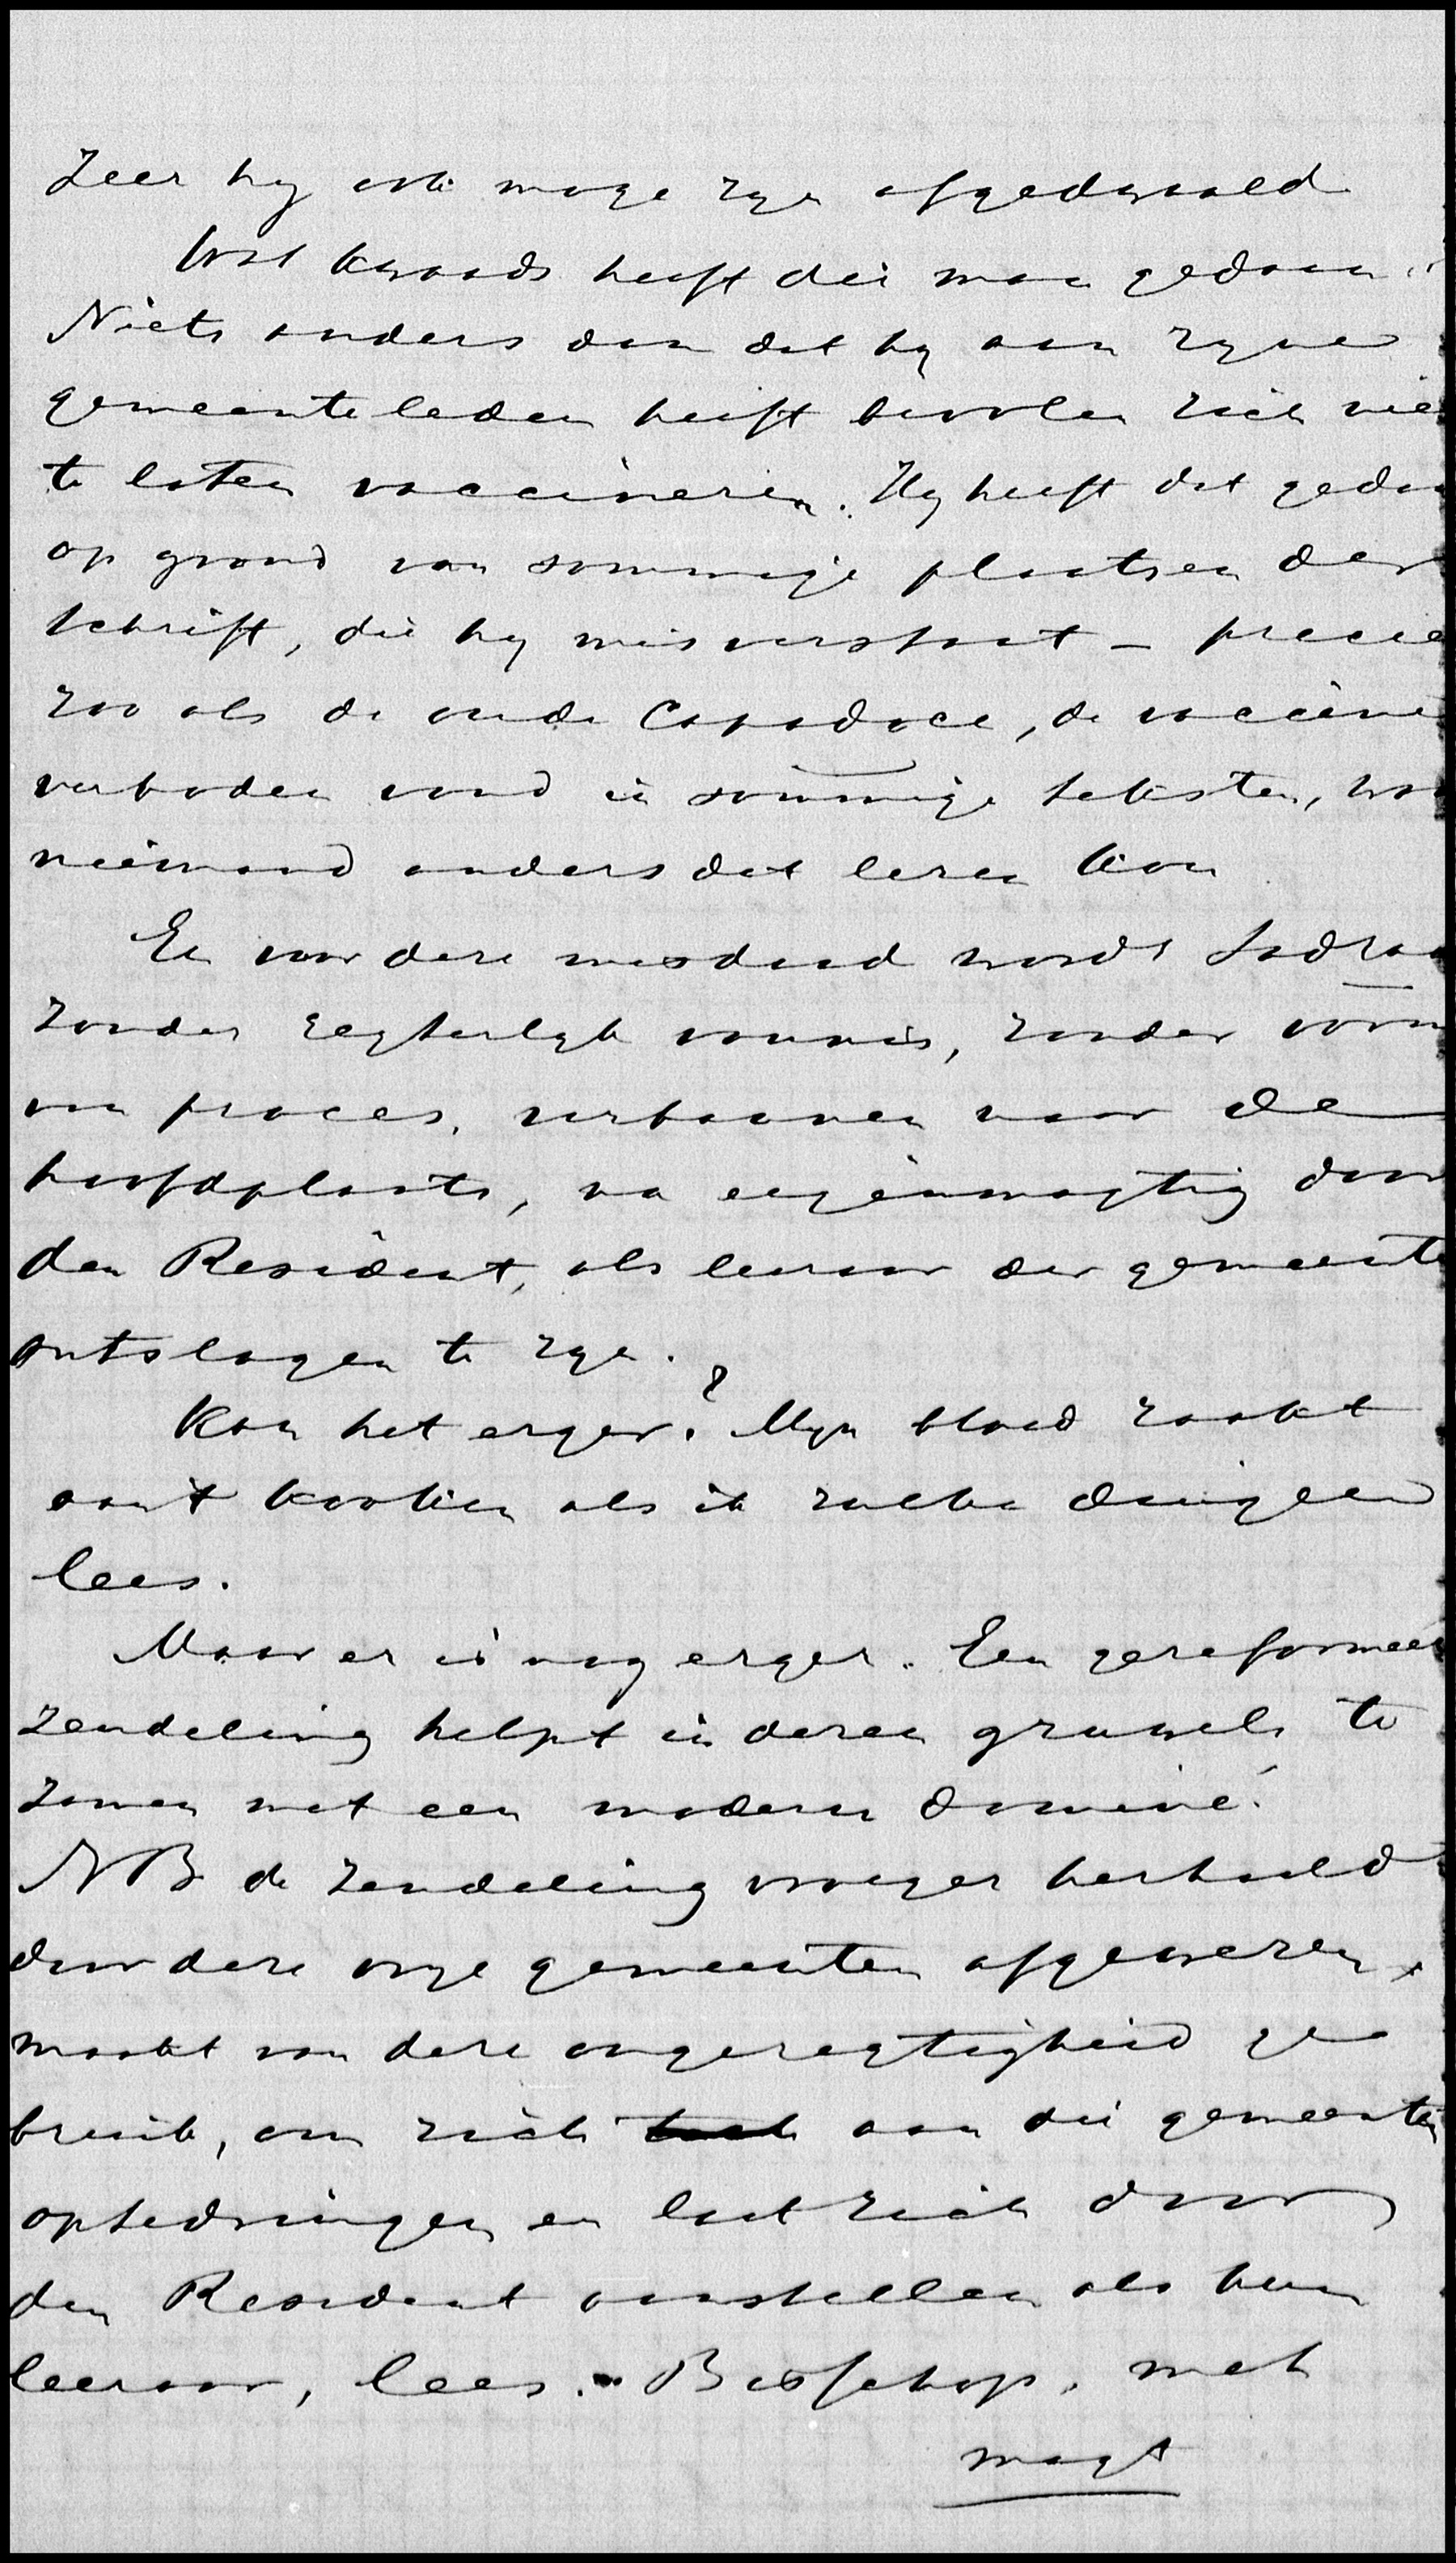 Zeer hy ook moge zyn afgedwaald
Wat kwaads heeft die man gedaan?
Niets anders dan dat hy aan zyne
gemeenteleden heeft bevolen zich nie
te laten vaccineren. Hy heeft dat geda
op grond van sommige plaatsen der
Schrift, die hy misverstaat – precie
zoo als de oude Capadoce, de vaccine
verboden vond in sommige teksten, wa
niemand anders dat lezen kon
En voor deze misdaad wordt Sadra
zonder regterlyk vonnis, zonder vorm
van proces, verbannen naar de
hoofdplaats, na eigenmagtig door
den Resident, als leeraar der gemeente
ontslagen te zyn.
Kan het erger? Myn bloed raakt
aan't kooken als ik zulke dingen
lees.
Maar er is nog erger. Een gereformeer
zendeling helpt in dezen gruwel te
zamen met een modern dominé.
NB de zendeling vroeger herhaald
door deze onze gemeenten afgewezen,
maakt van deze ongeregtigheid ge
bruik, om zich aan die gemeenten
optedringen en laat zich door
den Resident aanstellen als hun
leeraar, lees. Bisschop, met
magt